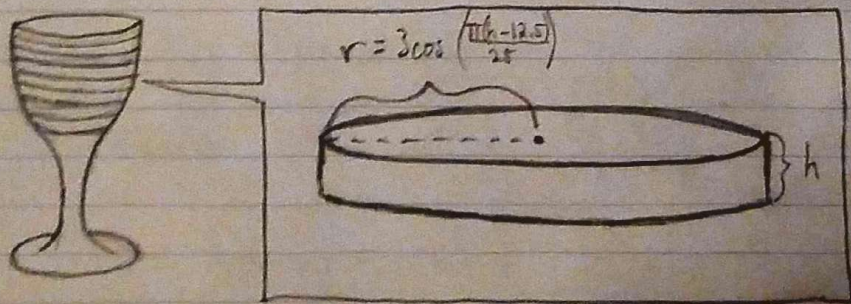 r = 3cos(π(h-12.5)/25)
h